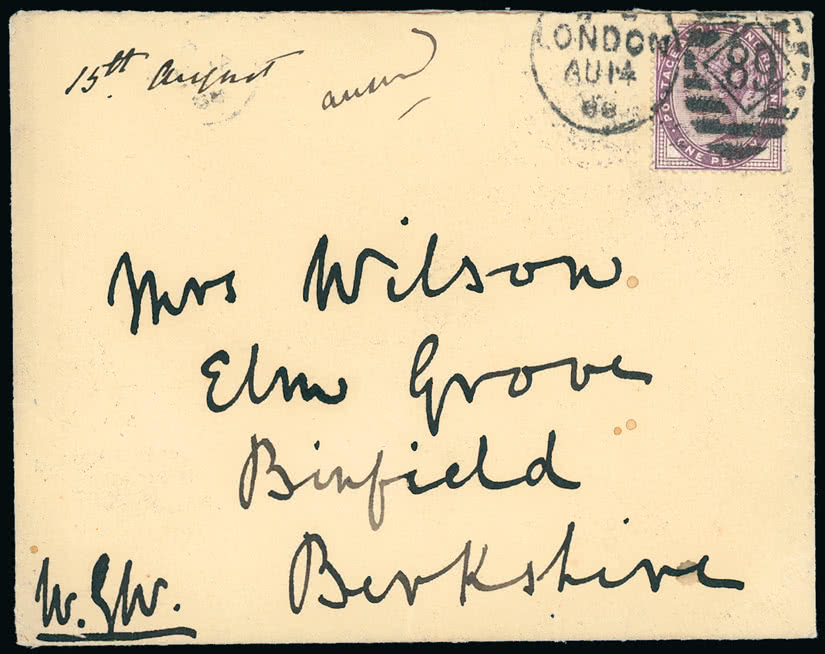 15th August
LONDON
AU 14
88
POSTAGE
ONE PENNY
Mrs Wilson
Elm Grove
Binfield
Berkshire
W.GW.